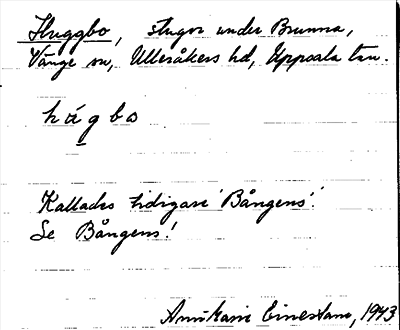 Huggbo, stugor under Brunna,
Vänge sn, Ulleråkers hd, Uppsala län.
hágbo
Kallades tidigare 'Bångens'.
Se Bångens!
Ann-Marie Einestam, 1943